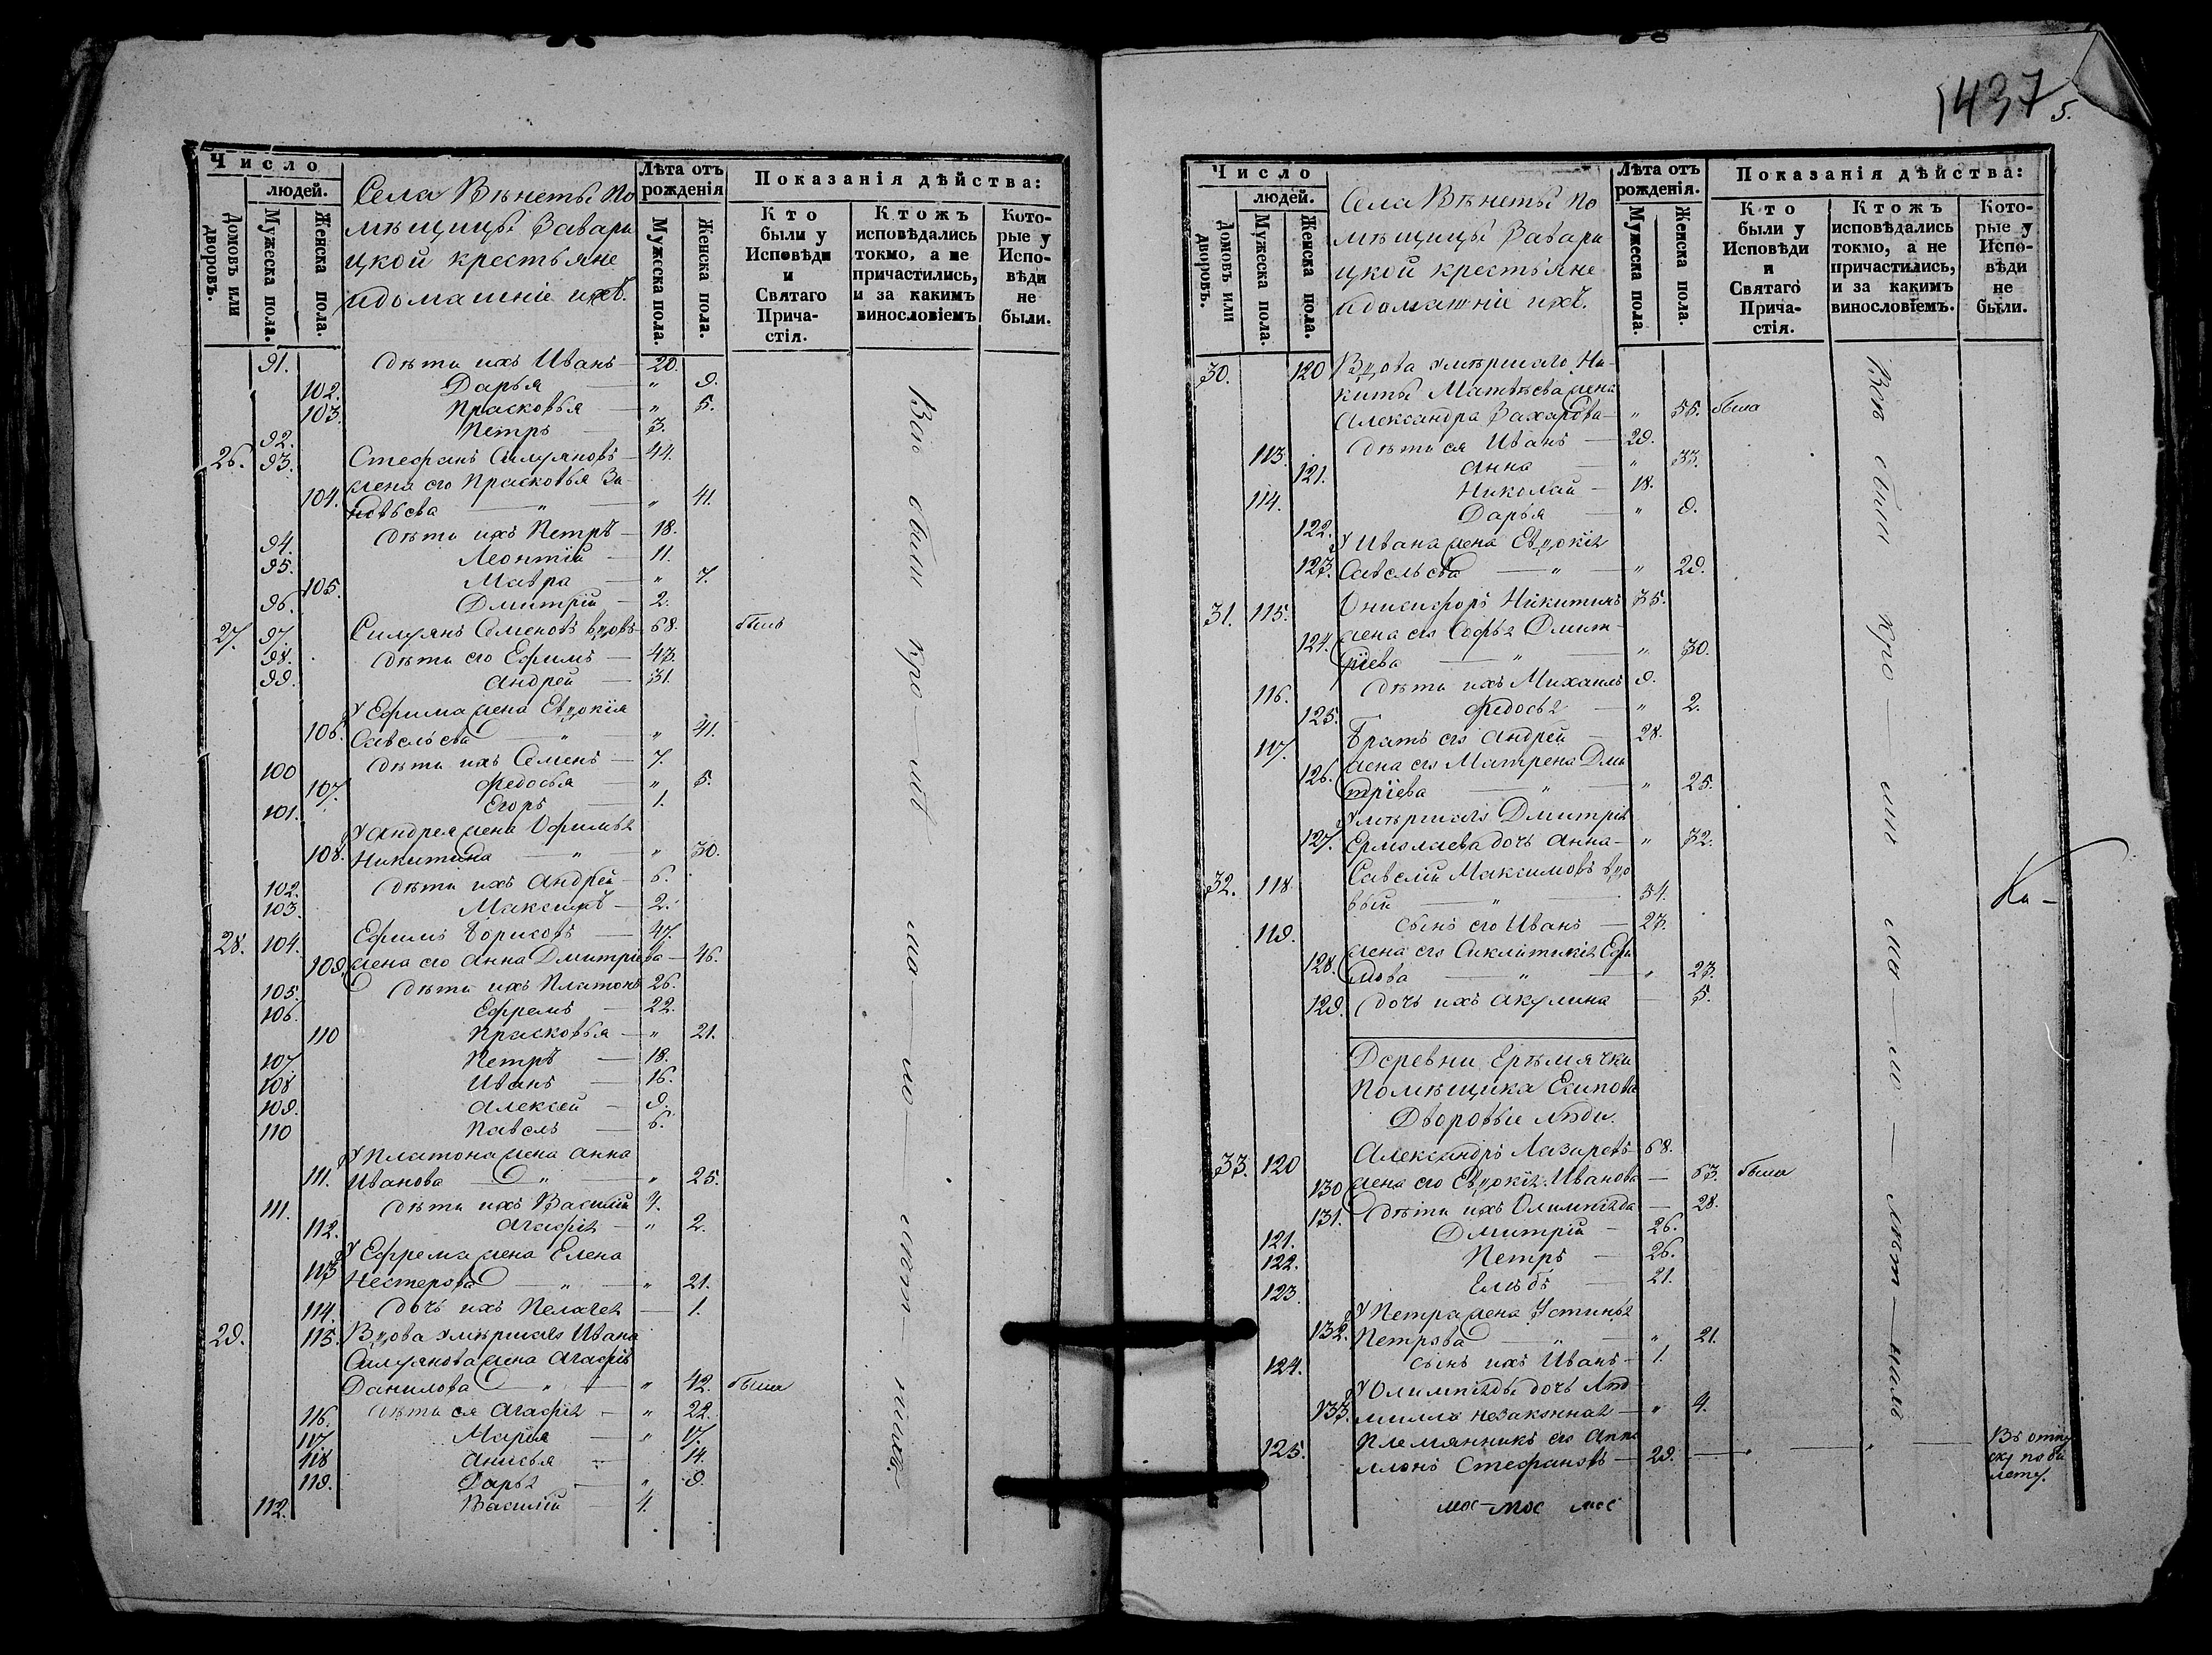 1437
5.
Число
людей.
Домовъ или дворовъ.
Мужеска пола.
Женска пола.
Села Вѣнеты По
мѣщицы Завари
цкой крестьяне
и домашніе ихъ.
Лѣта отъ рожденія
Мужеска пола.
Женска пола.
Показанія дѣйства:
Кто были у Исповѣди и Святаго Причастія.
Ктожъ исповѣдались токмо, а не причастились, и за какимъ винословіемъ
Которые у Исповѣди не были.
91. дѣти ихъ Иванъ — 20.
102. Дарья — " 9.
103. Прасковья — " 5.
92. Петръ — 3.
26. 93. Стефанъ Силуяновъ — 44.
104. жена его Прасковья
" — " 41.
94. дѣти ихъ Петръ — 18.
95. Леонтій — 11.
105. Мавра — " 7.
96. Дмитрій — 2.
27. 97. Силуянъ Семеновъ вдовъ 68. былъ
98. дѣти его Ефимъ — 43.
99. Андрей — 31.
У Ефима жена Евдокія
106. Савельева — " — " 41.
100 дѣти ихъ Семенъ — 7.
107. Федосья — " 5.
101. Егоръ — 1.
У Андрея жена Офимья
108. Никитина — " — " 30.
102. дѣти ихъ Андрей — 6.
103. Максимъ — 2.
28. 104. Ефимъ Борисовъ — 47.
109. жена его Анна Дмитріева — 46.
105. дѣти ихъ Платонъ 26.
106. Ефремъ — 22.
110 Прасковья — " 21.
107. Петръ — 18.
108 Иванъ — 16.
109. Алексей — 9.
110 Павелъ — 6.
У Платона жена Анна
111. Иванова — " — " 25.
111. дѣти ихъ Василій 4.
112. Агафія — " 2.
У Ефрема жена Елена
113 Нестерова — " — " 21.
114. дочь ихъ Пелагея — 1.
29. 115. Вдова умѣршаго Ивана
Силуянова жена Агафія
Данилова — " — " 42. была
116. дѣти ея Агафія — " 22.
117 Марья — " 17.
118 Анисья — 14.
119. Дарья — " 9.
112. Василій — 4.
Число
людей.
Домовъ или дворовъ.
Мужеска пола.
Женска пола.
Села Вѣнеты По
мѣщицы Завари
цкой крестьяне
и домашніе ихъ.
Лѣта отъ рожденія.
Мужеска пола.
Женска пола.
Показанія дѣйства:
Кто были у Исповѣди и Святаго Причастія.
Ктожъ исповѣдались токмо, а не причастились, и за какимъ винословіемъ.
Которые у Исповѣди не были.
30. 120 Вдова умѣршаго Ни-
киты Матвѣева жена
Александра Захарова — " 55. была
113. дѣти ея Иванъ — 29.
121. Анна — " 33.
114. Николай — 18.
122. Дарья — " 9.
У Ивана жена Евдокія
123. Савельева — " — " 29.
31. 115. Онисифоръ Никитинъ 35.
124. жена его Софья Дмит-
ріева — " — " 30.
116. дѣти ихъ Михаилъ 9.
125. Федосья — " 2.
117. Братъ его Андрей — 28.
126. жена его Матрена Дми
тріева — " — " 25.
Умѣршаго Дмитрія
127. Ермолаева дочь Анна — " 32.
32. 118 Савелій Максимовъ вдо
вый — " — 54.
119. сынъ его Иванъ — 23.
128. жена его Секлитикія Ефи
мова — " — " 23.
129. дочь ихъ Акулина — 5.
Деревни Ерѣмячки
Помѣщика Есипова
Дворовыи люди.
33. 120 Александръ Лазаревъ 68.
130 жена его Евдокія Иванова — 63. была
131. дѣти ихъ Олимпіада — 28.
121. Дмитрій — 26.
122. Петръ — 26.
123. Глѣбъ — 21.
У Петра жена Устинья
132. Петрова — " — " 21.
124. сынъ ихъ Иванъ — 1.
У Олимпіады дочь Люд
133. мила незаконная — " 4.
125. Племянникъ его Аппо
ллонъ Стефановъ — 29. — " — " — Въ отпу
ску по би
лету.